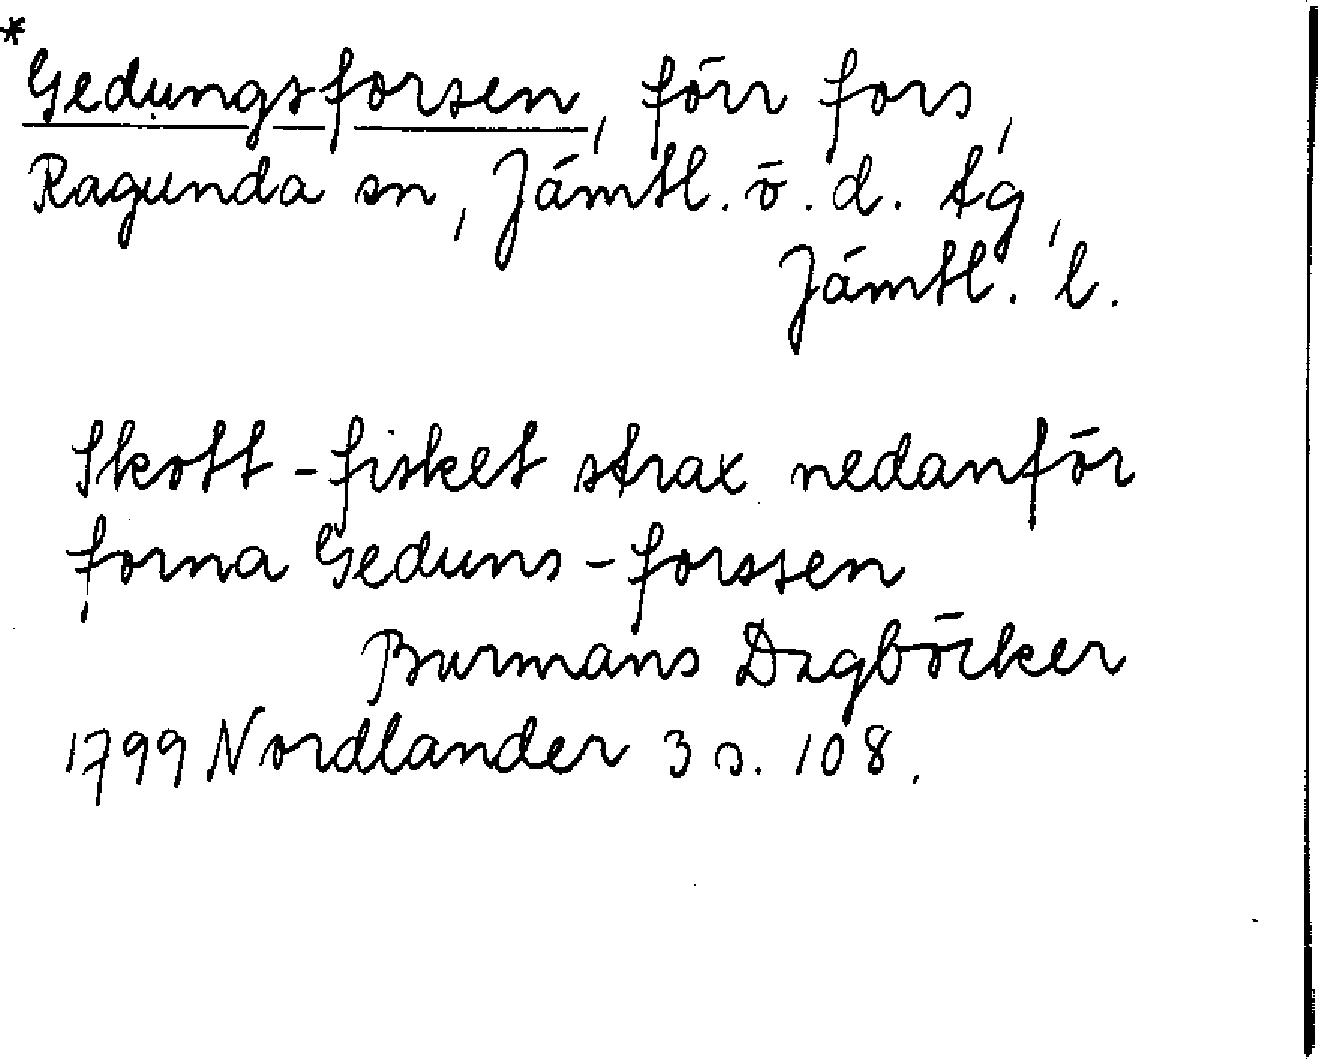 *
Gedungsforsen, förr fors,
Ragunda sn, Jämtl. ö. d. tg,
Jämtl. l.
Skott-fisket strax nedanför
forna Geduns-forssen
Burmans Dagböcker
1799 Nordlander 3 s. 108.